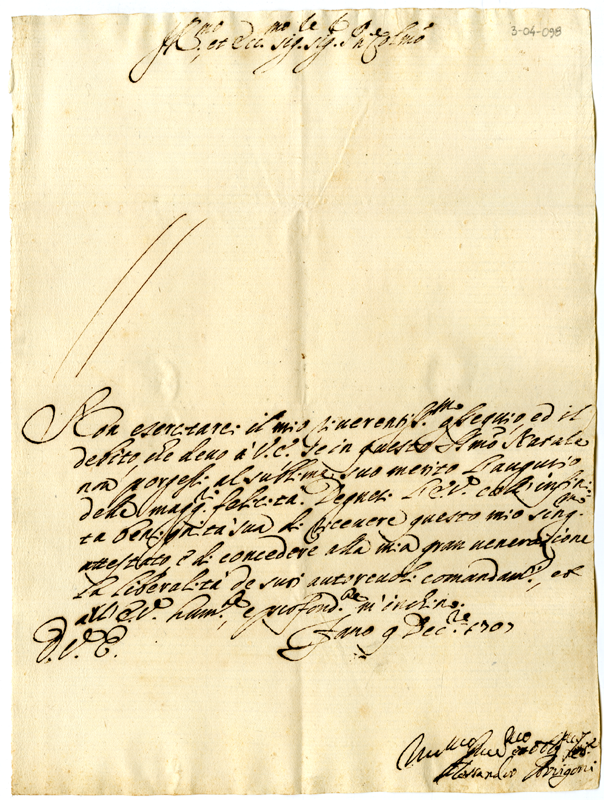 3-04-098
Ill.mo, et Ecc.mo sig.re sig.r P.ne Col.mo
Non esercitarei il mio riverentiss.mo ossequio ed il
debito, che devo à V.E. se in questo S.mo Natale
non porgessi al sublime suo merito l'augurio
delle magg.ri felicità. Degnisi l'E.V. coll'infini-
ta benignità sua di ricevere questo mio sing.mo
attestato e di concedere alla mia gran venerazione
la liberalità de suoi autorevoli comandam.ti, et
all'E.V. hum.te, e profond.te m'inchino.
D.V.E. Fano 9 Dec.re 1707
Alessandro Arrigoni